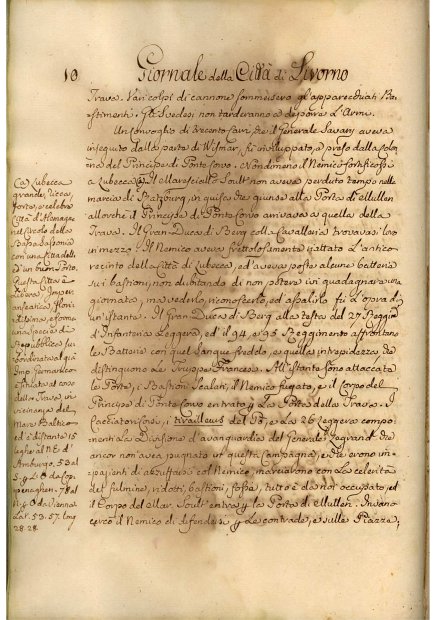 10 Giornale della Città di Livorno
Trava. Vari colpi di cannone sommersero gl'apparecchiati Ba-
stimenti. Gli Svedesi non tarderanno a deporre l'Armi.
Un Convoglio di trecento Carri, che il Generale Savary aveva
inseguito dalla parte di Wismar, fù inviluppato, e preso dalla Colon-
na del Principe di Ponte Corvo. Nondimeno il Nemico fortificossi
a Lubecca (a). Il Maresciall Soult non aveva perduto tempo nella
marcia di Ratzburg, in guisa che giunse alla Porta di Mullen
allorchè il Principe di Ponte Corvo arrivava a quella della
Trava. Il Gran Duca di Berg colla Cavalleria trovavasi loro
in mezzo. Il Nemico aveva frettolosamente riattato l'antico
recinto della Città di Lubecca, ed aveva poste alcune batterie
sui bastioni, non dubitando di non potere ivi guadagnare una
giornata, ma vederlo, riconoscerlo, ed assalirlo fù l'opra di
un'istante. Il Gran Duca di Berg alla testa del 27 Reggim.
d'Infanteria Leggera, ed il 94, e 95 Reggimento affrontano
le Batterie con quel Sangue freddo, e quella intrepidezza che
distinguono le Truppe Francesi. All'istante sono attaccate
le Porte, i Bastioni Scalati, il Nemico fugato, e il Corpo del
Principe di Ponte Corvo entrato per la Porta della Trava. I
Cacciatori Corsi, i tirailleurs del Pò, e la 26 Leggera compo-
nenti la Divisione d'avanguardia del Generale Legrand che
ancor non aveva pugnato in questa Campagna, e che erano im-
pazienti di azzuffarsi col Nemico, marciavano con la celerità
del fulmine, ridotti, bastioni, fossa, tutto è da noi occupato, ed
il Corpo del Mar. Soult entra per la Porta di Mullen. Invano
cercò il Nemico di difendersi per le contrade, e sulle Piazze;
(a) Lubecca
grande, ricca,
forte, e celebre
Città d'Alemagna
nel Circolo della
Bassa Sassonia
con una Cittadella
e un buon Porto.
Questa Città è
Libera Imper.
Anseatica, Flori-
dissima, e forma
una Specie di
Repubblica su-
bordinata al già
Imp. Germanico
è situata al corso
della Trava in
vicinanza del
Mare Baltico
ed è distante 15
leghe al N.E. d'
Amburgo, 53 al
S. per l'O. da Cop-
penaghen, 178 al
N. per O. da Vienna
Lat. 53. 57. long.
28. 28.